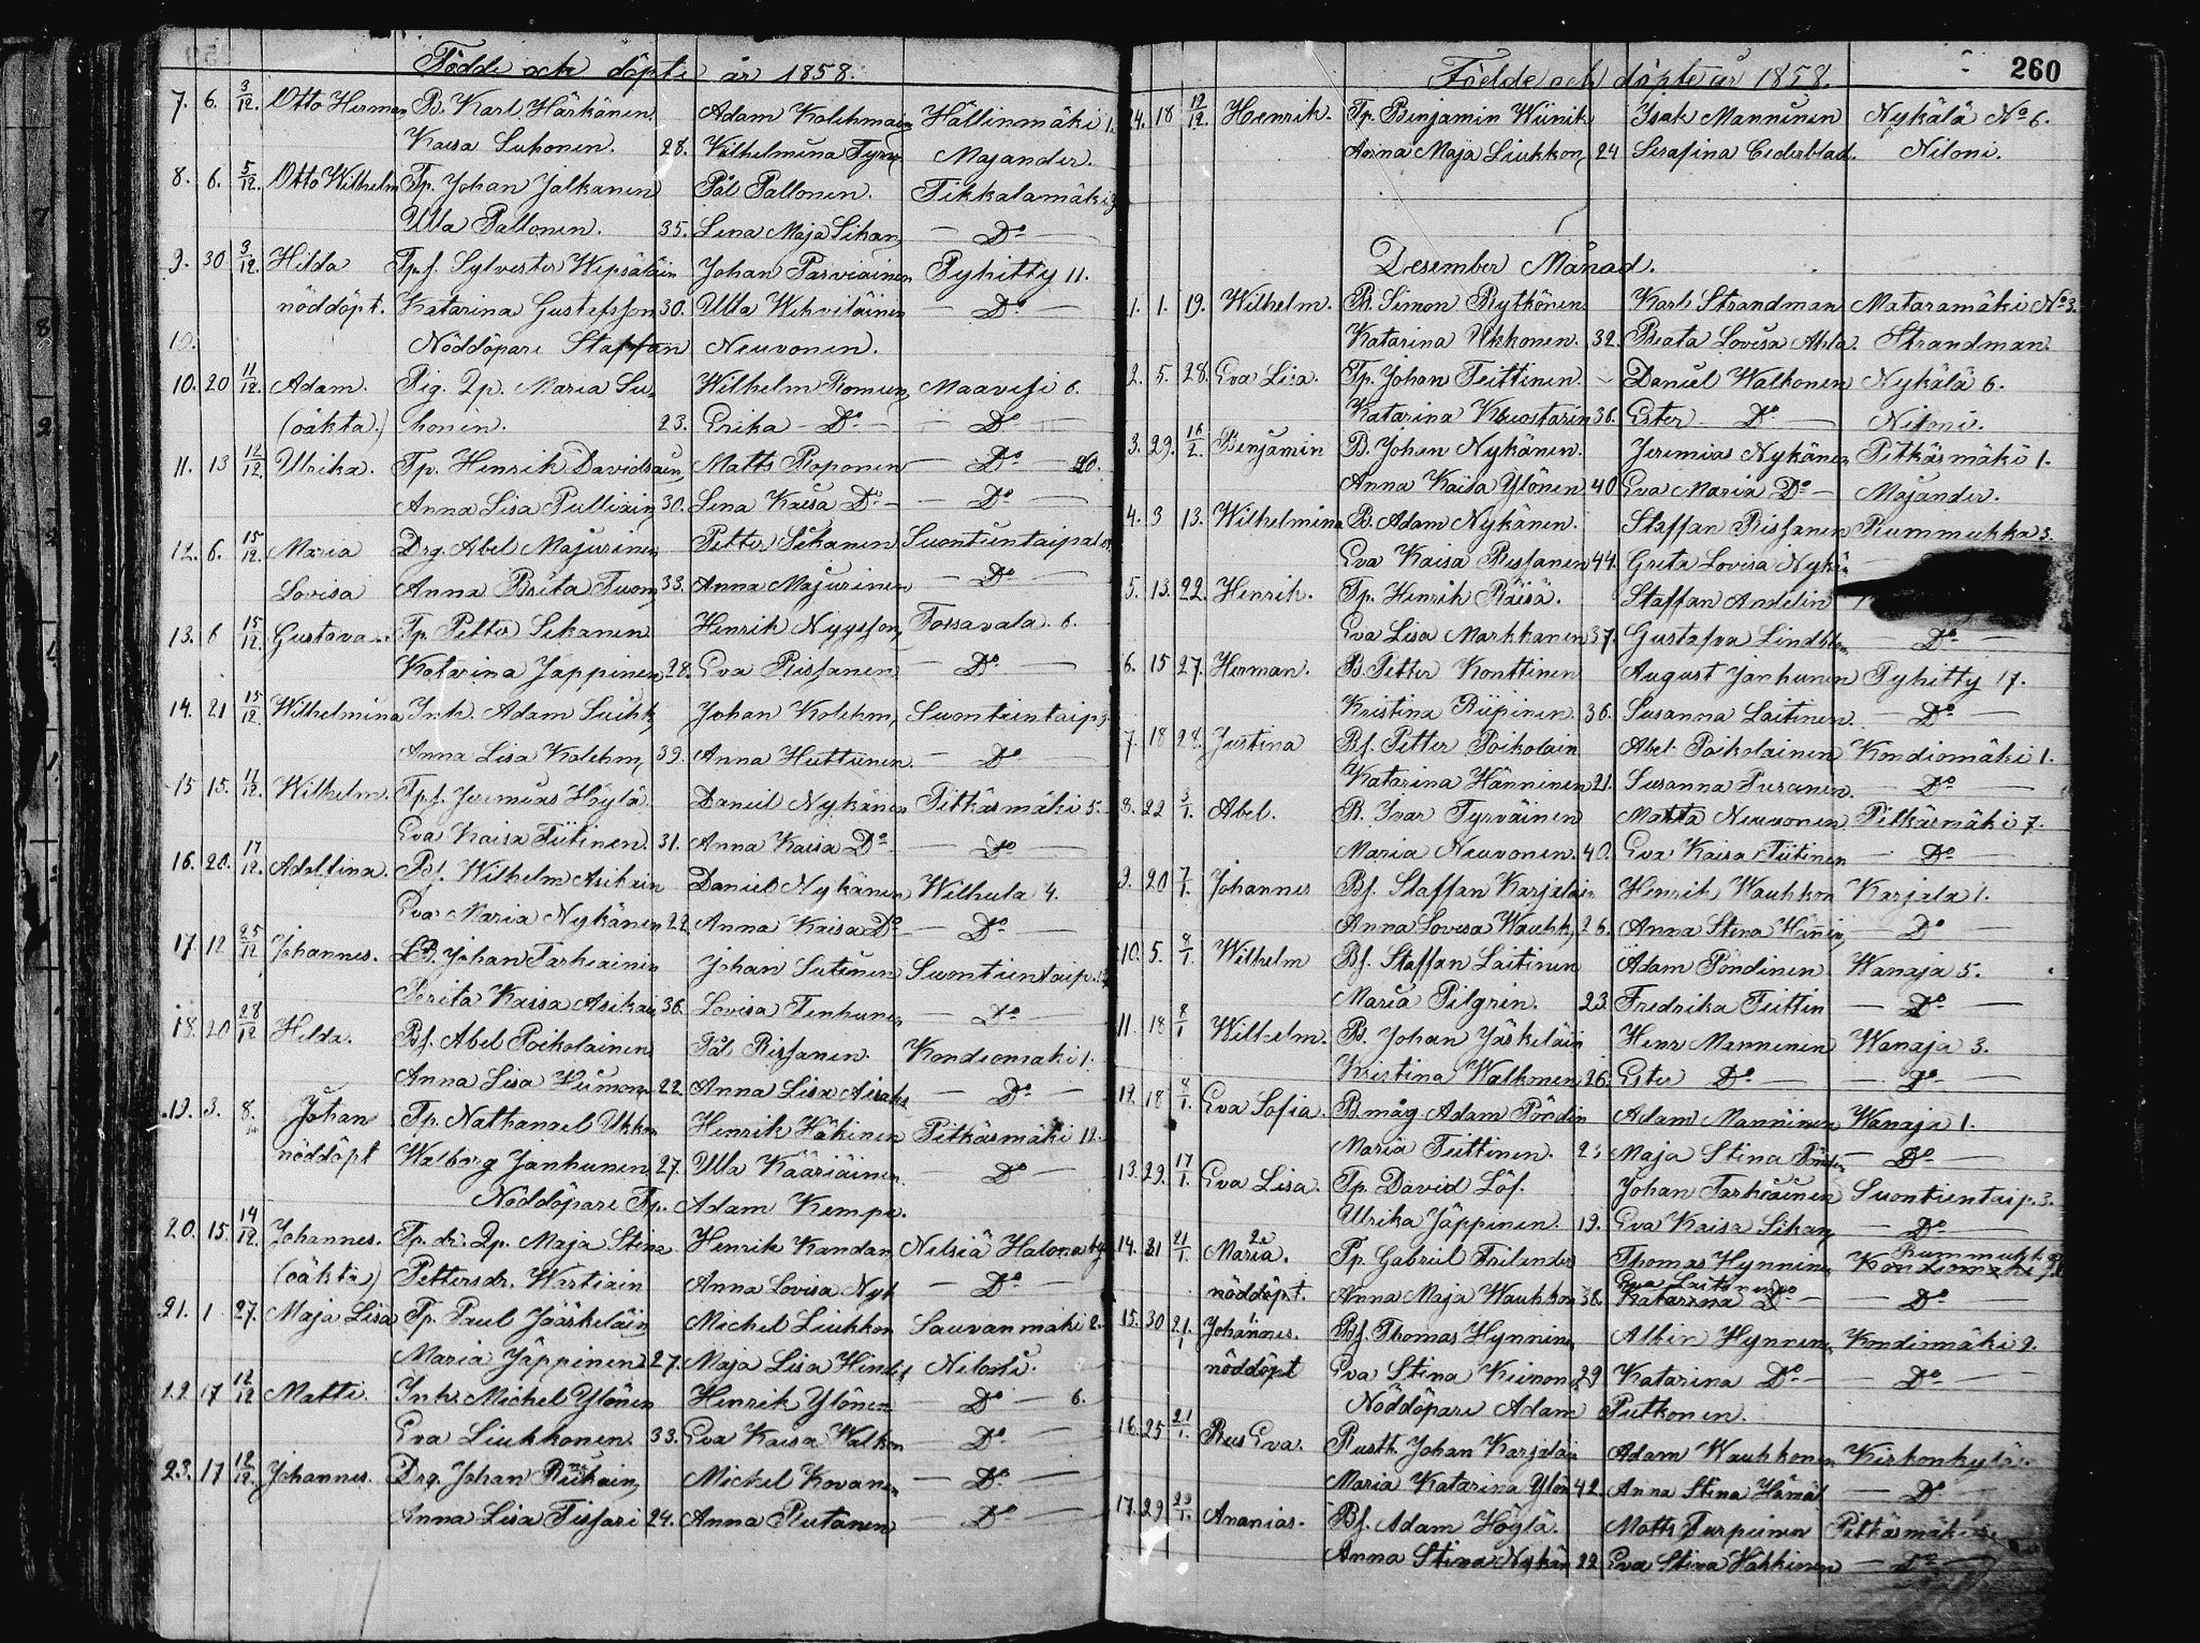 Födde och döpte år 1858.
7. 6. 3/12. Otto Herman B. Karl Härkänen Adam Kolehmain Hällinmäki 1.
Kaisa Suhonen. 28. Wilhelmina Tyrv Majander.
8. 6. 5/12. Otto Wilhelm Tp. Johan Jalkanen Pål Pallonen. Tikkalamäki 3
Ulla Pallonen. 35. Lena Maja Sikan, — Do —
9. 30 3/12. Hilda Tpf. Sylvester Wepsäläin Johan Parviainen Pyhitty 11.
nöddöpt. Katarina Gustafsson 30. Ulla Wehviläinen — Do —
10. Nöddöpare Staffan Neuvonen.
10. 20 11/12. Adam. Pig. Qp. Maria Su- Wilhelm Romun, Maavesi 6.
(oäkta.) honen. 23. Erika — Do — — Do —
11. 13 12/12. Ulrika. Tp. Henrik Davidsain, Matts Roponen — Do — 20.
Anna Lisa Pulliain, 30. Lena Kaisa Do — — Do —
12. 6. 15/12. Maria Drg. Abel Majurinen Petter Sikanen Suontientaipal
Lovisa Anna Brita Tuom, 33. Anna Majurinen — Do —
13. 6 15/12. Gustava. Tp. Petter Sikanen Henrik Nygssson, Tossavala. 6.
Katarina Jäppinen, 28. Eva Rissanen — Do —
14. 21 15/12. Wilhelmina Inh. Adam Suihk, Johan Kolehm, Suontientaip,
Anna Lisa Kolehm, 39. Anna Huttunen. — Do —
15 15. 11/12. Wilhelm. Tpf. Jeremias Höylä. Daniel Nykänen Pitkäsmäki 5.
Eva Kaisa Tiitinen. 31. Anna Kaisa Do — Do —
16. 20. 17/12. Adolfina. Bf. Wilhelm Asikain Daniel Nykänen Wilhula 4.
Eva Maria Nykänen 22. Anna Kaisa Do — Do —
17. 12 25/12 Johannes. B. Johan Tarkiainen Johan Sutinen Suontientaip.
Perita Kaisa Asikai, 36. Lovisa Tenhunen — Do —
18. 20 28/12 Hilda. Bf. Abel Poikolainen Pål Rissanen. Kondiomäki 1.
Anna Lisa 22. Anna Lisa — Do —
19. 3. 8. Johan Tp. Nathanael Ukkon Henrik Häkinen Pitkäsmäki 12.
nöddöpt Walborg Janhunen 27. Ulla Kääriäinen. — Do —
Nöddöpare Tp. Adam Kempa.
20. 15. 14/12. Johannes. Tp. dr. Qp. Maja Stina Henrik Kandan Nilsiä Halona by
(oäkta) Pettersdr. Wartiain Anna Lovisa Nyk — Do —
21. 1 27. Maja Lisa Tp. Paul Jääskeläin Michel Liukkon Sauvanmäki 2.
Maria Jäppinen 27. Maja Lisa Niloni.
22. 17 12/12 Matti. Inh. Michel Ylönen Henrik Ylönen — Do — 6.
Eva Liukkonen. 33. Eva Kaisa Walkon — Do —
23. 17 12/12. Johannes. Drg. Johan Michel Kovanen — Do —
Anna Lisa Tissari 24. Anna Rutanen — Do —
260
Födde och döpte år 1858.
24. 18 12/12. Henrik. Tp. Benjamin Wiinik Isak Manninen Nykälä No 6.
Anna Maja Liukkon, 24 Serafina Cederblad. Niloni.
Desember Månad.
1. 1. 19. Wilhelm. B. Simon Rytkönen Karl Strandman Mataramäki No 3.
Katarina Ukkonen. 32. Beata Lovisa Strandman.
2. 5. 28. Eva Lisa. Tp. Johan Teittinen. Daniel Walkonen Nykälä 6.
Katarina 36. Ester — Do — Niloni.
3. 29. 16/2. Benjamin B. Johan Nykänen. Jeremias Nykänen Pitkäsmäki 1.
Anna Kaisa Ylönen 40 Eva Maria Do — Majander.
4. 3 13. Wilhelmina B. Adam Nykänen. Staffan Rissanen Rummukka 3.
Eva Kaisa Rissanen 44. Greta Lovisa Nykä
5. 13. 22. Henrik. Tp. Henrik Räisä. Staffan Andelin
Eva Lisa Markkanen 37. Gustafva — Do —
6. 15 27. Herman. B. Petter Konttinen August Janhunen Pyhitty 17.
Kristina Riipinen. 36. Susanna Laitinen. — Do —
7. 18 28. Justina Bf. Petter Poikolain Abel Poikolainen Kondiomäki 1.
Katarina Hänninen 21. Susanna Puranen. — Do —
8. 22 3/1. Abel. B. Ivar Tyrväinen Matts Neuvonen Pitkäsmäki 7.
Maria Neuvonen. 40. Eva Kaisa Tiitinen — Do —
9. 20 7/1. Johannes Bf. Staffan Karjalain Henrik Waukkon Karjala 1.
Anna Lovisa Waukk, 26. Anna Stina — Do —
10. 5. 8/1. Wilhelm Bf. Staffan Laitinen Adam Pöndinen Wanaja 5.
Maria Pilgrin. 23. Fredrika Teittin — Do —
11. 18 8/1 Wilhelm. B. Johan Jäskeläin Henr Manninen Wanaja 3.
Kristina Walkonen 26. Ester Do — — Do —
12. 18 8/1. Eva Sofia. B. måg Adam Pöndin Adam Manninen Wanaja 1.
Maria Teittinen. Maja Stina — Do —
13. 29. 17/1. Eva Lisa. Tp. David Löf. Johan Tarkiainen Suontientaip. 3.
Ulrika Jäppinen. 19. Eva Kaisa Sikan, — Do —
14. 31 21/1. Maria. Tp. Gabriel Frilander Thomas Hynninen Kondiomäki Rummukka
nöddöpt. Anna Maja Waukkon 38. Katarina Do Eva Laitinen — Do —
15. 30 21/1. Johannes. Bf. Thomas Hynninen Albin Hynnen, Kondiomäki 2.
nöddöpt Eva Stina 29 Katarina Do — — Do —
Nöddöpare Adam Putkonen.
16. 25 21/1. Eva. Rustt. Johan Karjalai Adam Waukkonen Kirkonkylä.
Maria Katarina Ylön 42. Anna Stina Hämäl — Do
17. 29 29/1. Ananias. Bf. Adam Höylä. Matts Turpeinen Pitkäsmäki
Anna Stina Nykän 22 Eva Stina Hakkinen — Do —